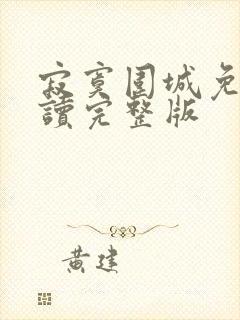 寂寞围城免
讀完整版
黄建